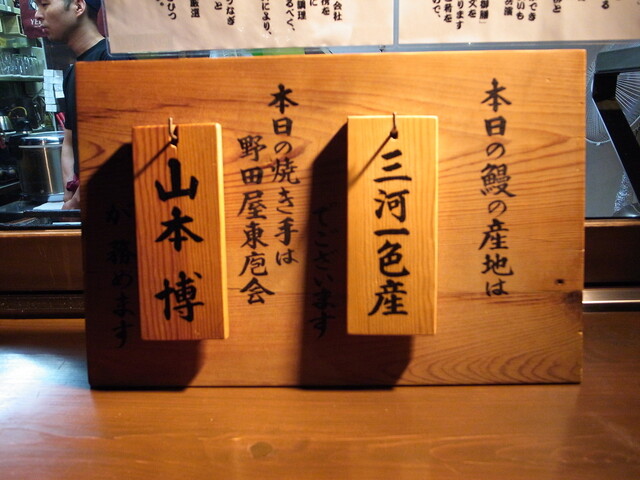 本日の鰻の産地は
三河一色産
でございます
本日の焼き手は
野田屋東庖会
山本 博
が務めます